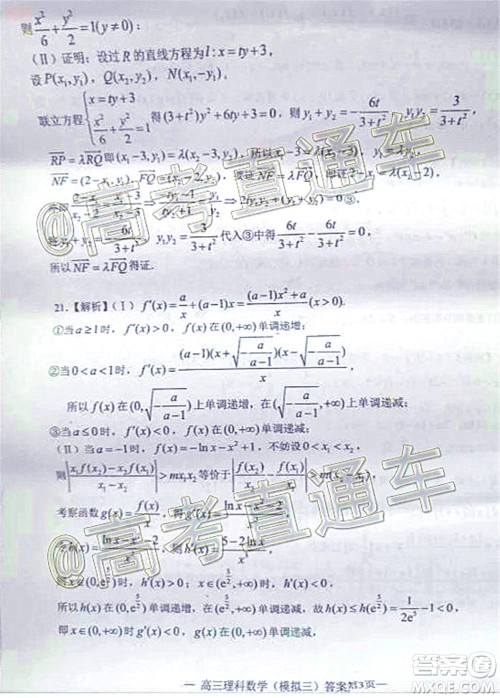 则 x²/6 + y²/2 = 1(y≠0);
(Ⅱ) 证明: 设过 R 的直线方程为 l: x = ty + 3,
设 P(x₁, y₁), Q(x₂, y₂), N(x₁, −y₁).
联立方程 { x = ty + 3, x²/6 + y²/2 = 1 得(3+t²)y² + 6ty + 3 = 0, 则 y₁ + y₂ = −6t/(3+t²), y₁y₂ = 3/(3+t²),
RP = λRQ 即(x₁−3, y₁) = λ(x₂−3, y₂), 所以 x₁−3
NF = (2−x₁, y₁), FQ = (x₂−2, y₂), 要证 NF = λFQ, 即证 2−x₁ = λ(x₂−2),
2ty₁y₂
y₁ + y₂ = −6t/(3+t²), y₁y₂ = 3/(3+t²) 代入③中得 6t/(3+t²) − 6t/(3+t²) = 0,
所以 NF = λFQ 得证.
21.【解析】(Ⅰ) f′(x) = a/x + (a−1)x = ((a−1)x² + a)/x
①当 a ≥ 1 时, f′(x) > 0, f(x) 在(0,+∞) 单调递增;
②当 0 < a < 1 时, f′(x) = (a−1)(x + √(−a/(a−1)))(x − √(−a/(a−1)))/x
所以 f(x) 在(0, √(−a/(a−1))) 上单调递增, 在(√(−a/(a−1)), +∞) 上单调递减;
③当 a ≤ 0 时, f′(x) < 0, f(x) 在(0,+∞) 单调递减;
(Ⅱ) 当 a = −1 时, f(x) = −ln x − x² + 1, 不妨设 0 < x₁ < x₂,
则 |(x₂f(x₁) − x₁f(x₂))/(x₁ − x₂)| > mx₁x₂ 等价于 |f(x₂)/x₂ − f(x₁)/x₁|
考察函数 g(x) = f(x)/x, 得 g′(x) = (ln x − x² − 2)/x²,
h(x) = (ln x − x² − 2)/x², 则 h′(x) = (5 − 2ln x)/x³,
x∈(0, e^(5/2)) 时, h′(x) > 0,
所以 h(x) 在(0, e^(5/2)) 上单调递增, 在(e^(5/2), +∞) 上单调递减, 所以 h(x) ≤ h(e^(5/2)) = 1/(2e⁵) − 1 < 0,
即 x∈(0,+∞) 时 g′(x) < 0, g(x) 在(0,+∞) 上单调递减.
@高考直通车
@高考直通车
— 高三理科数学(模拟三) 答案第3页 —